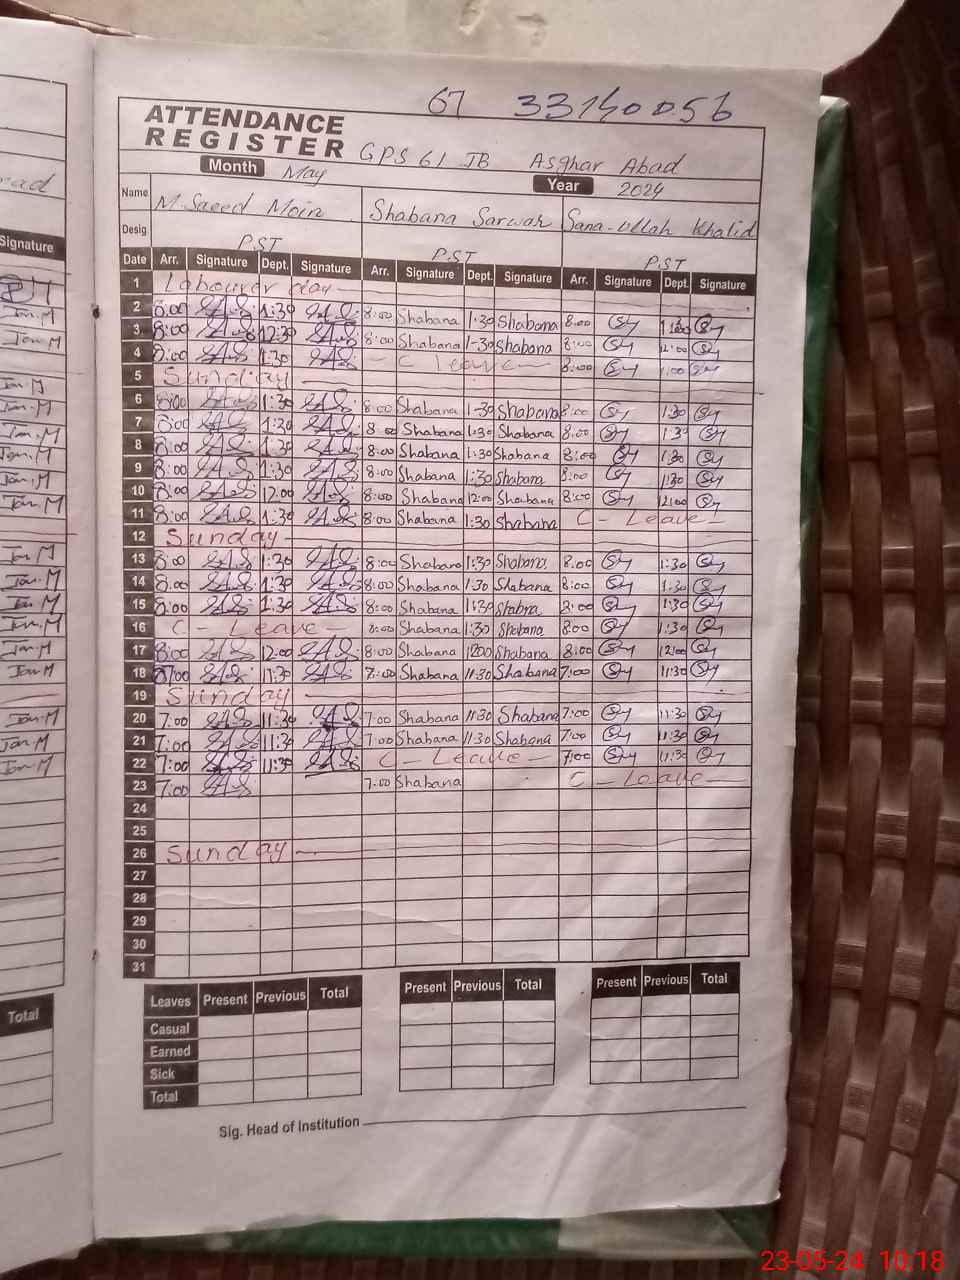 67 33140056
ATTENDANCE
REGISTER GPS 61 JB Asghar Abad
Month May Year 2024
Name M.Saeed Moin Shabana Sarwar Sana-ullah Khalid
Desig. PST PST PST
Date Arr. Signature Dept. Signature Arr. Signature Dept. Signature Arr. Signature Dept. Signature
1 Labourer day
2 8:00 1:30 8:00 Shabana 1:30 Shabana 8:00
3 8:00 12:30 8:00 Shabana 1-30 Shabana 8:00 12:00
4 8:00 1:30 C leave 8:00 1:00
5 Sunday
6 8:00 1:30 8:00 Shabana 1-30 Shabana 8:00 1:30
7 8:00 1:30 8:00 Shabana 1:30 Shabana 8:00 1:30
8 8:00 1:30 8:00 Shabana 1:30 Shabana 8:00 1:30
9 8:00 1:30 8:00 Shabana 1:30 Shabana 8:00 1:30
10 8:00 12:00 8:00 Shabana 12:00 Shabana 8:00 12:00
11 8:00 1:30 8:00 Shabana 1:30 Shabana C - Leave
12 Sunday
13 8:00 1:30 8:00 Shabana 1:30 Shabana 8:00 1:30
14 8:00 1:30 8:00 Shabana 1:30 Shabana 8:00 1:30
15 8:00 1:30 8:00 Shabana 1:30 Shabna 8:00 1:30
16 C - Leave 8:00 Shabana 1:30 Shabana 8:00 1:30
17 8:00 12:00 8:00 Shabana 1200 Shabana 8:00 12:00
18 7:00 11:30 7:00 Shabana 11:30 Shabana 7:00 11:30
19 Sunday
20 7:00 11:30 7:00 Shabana 11:30 Shabana 7:00 11:30
21 7:00 11:30 7:00 Shabana 11:30 Shabana 7:00 11:30
22 7:00 11:30 C - Leave 7:00 11:30
23 7:00 7:00 Shabana C - Leave
24
25
26 Sunday
27
28
29
30
31
Leaves Present Previous Total Present Previous Total Present Previous Total
Casual
Earned
Sick
Total
Sig. Head of Institution
Signature
Total
23-05-24 10:18